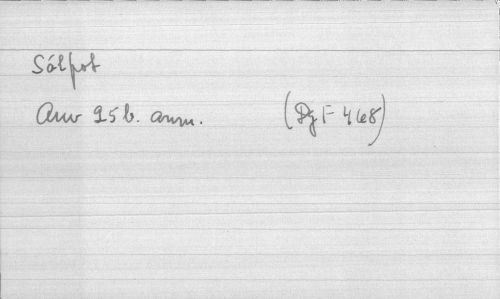 Sólpot
Anv 25 b. anm. (Dg F 468)